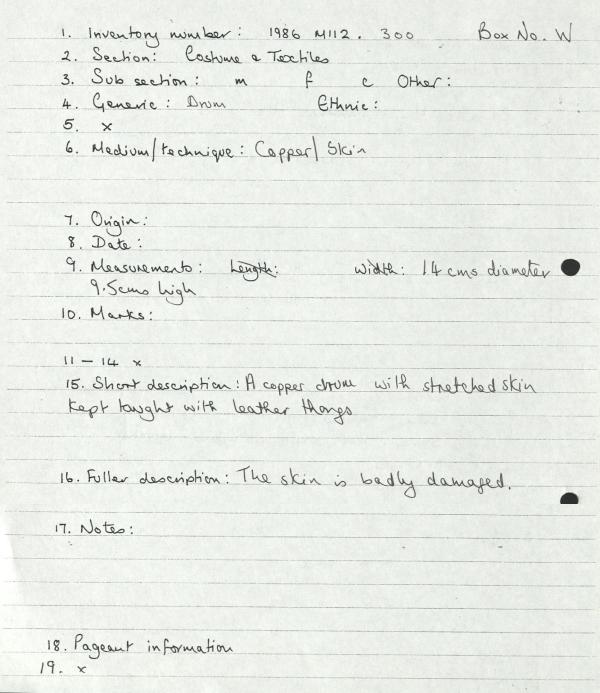 1. Inventory number: 1986 M112. 300 Box No. W
2. Section: Costume & Textiles
3. Sub section: m f c Other:
4. Generic: Drum Ethnic:
5. x
6. Medium/technique: Copper/Skin
7. Origin:
8. Date:
9. Measurements: Length: Width: 14 cms diameter
9.5cms high
10. Marks:
11 - 14 x
15. Short description: A copper drum with stretched skin
kept taught with leather thongs
16. Fuller description: The skin is badly damaged.
17. Notes:
18. Pageant information
19. x